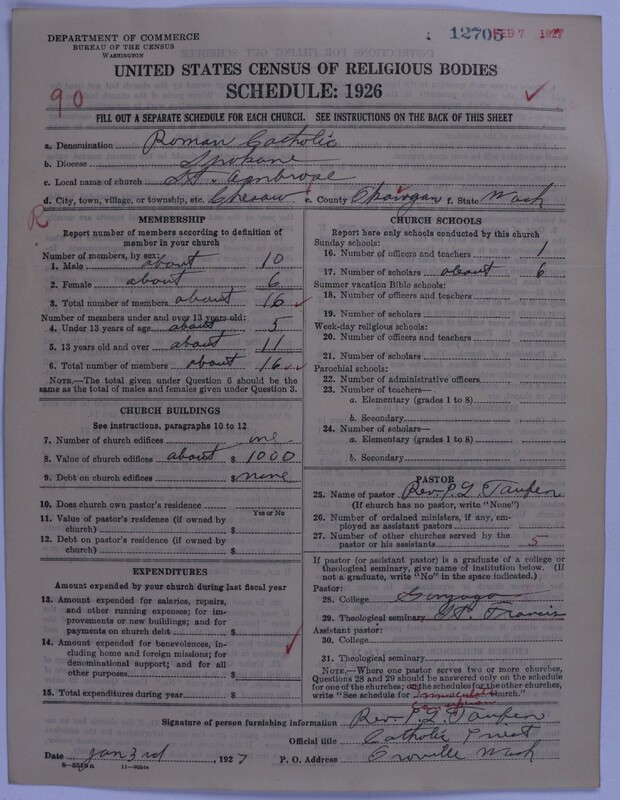 DEPARTMENT OF COMMERCE
BUREAU OF THE CENSUS
WASHINGTON
12705 FEB 7 1927
UNITED STATES CENSUS OF RELIGIOUS BODIES
SCHEDULE: 1926
90
FILL OUT A SEPARATE SCHEDULE FOR EACH CHURCH. SEE INSTRUCTIONS ON THE BACK OF THIS SHEET
a. Denomination Roman Catholic
b. Diocese Spokane
c. Local name of church St. Ambrose
d. City, town, village, or township, etc. Chesaw e. County Okanogan f. State Wash
R
MEMBERSHIP
Report number of members according to definition of
member in your church
Number of members, by sex:
1. Male about 10
2. Female about 6
3. Total number of members about 16
Number of members under and over 13 years old:
4. Under 13 years of age about 5
5. 13 years old and over about 11
6. Total number of members about 16
NOTE.—The total given under Question 6 should be the
same as the total of males and females given under Question 3.
CHURCH BUILDINGS
See instructions, paragraphs 10 to 12
7. Number of church edifices one
8. Value of church edifices about $ 1000
9. Debt on church edifices $ none
10. Does church own pastor's residence
Yes or No
11. Value of pastor's residence (if owned by
church) $
12. Debt on pastor's residence (if owned by
church) $
EXPENDITURES
Amount expended by your church during last fiscal year
13. Amount expended for salaries, repairs,
and other running expenses; for im-
provements or new buildings; and for
payments on church debt $
14. Amount expended for benevolences, in-
cluding home and foreign missions; for
denominational support; and for all
other purposes $
15. Total expenditures during year $
CHURCH SCHOOLS
Report here only schools conducted by this church
Sunday schools:
16. Number of officers and teachers 1
17. Number of scholars about 6
Summer vacation Bible schools:
18. Number of officers and teachers
19. Number of scholars
Week-day religious schools:
20. Number of officers and teachers
21. Number of scholars
Parochial schools:
22. Number of administrative officers
23. Number of teachers—
a. Elementary (grades 1 to 8)
b. Secondary
24. Number of scholars—
a. Elementary (grades 1 to 8)
b. Secondary
PASTOR
25. Name of pastor Rev. P. L. Taufen
(If church has no pastor, write "None")
26. Number of ordained ministers, if any, em-
ployed as assistant pastors
27. Number of other churches served by the
pastor or his assistants 5
If pastor (or assistant pastor) is a graduate of a college or
theological seminary, give name of institution below. (If
not a graduate, write "No" in the space indicated.)
Pastor:
28. College Gonzaga
29. Theological seminary St. Francis
Assistant pastor:
30. College
31. Theological seminary
NOTE.—Where one pastor serves two or more churches,
Questions 28 and 29 should be answered only on the schedule
for one of the churches; on the schedules for the other churches,
write "See schedule for Immaculate Conception Church."
Signature of person furnishing information Rev. P. L. Taufen
Official title Catholic Priest
Date Jan 3rd, 1927 P. O. Address Oroville Wash